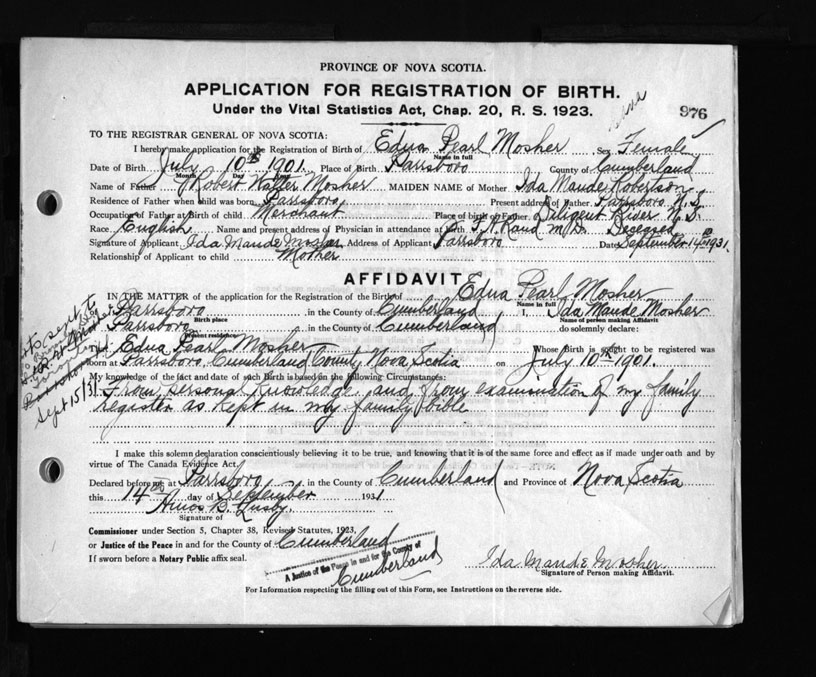 PROVINCE OF NOVA SCOTIA.
APPLICATION FOR REGISTRATION OF BIRTH.
Under the Vital Statistics Act, Chap. 20, R. S. 1923.
976
TO THE REGISTRAR GENERAL OF NOVA SCOTIA:
I hereby make application for the Registration of Birth of Edna Pearl Mosher Sex Female
Name in full
Date of Birth July 10th 1901. Place of Birth Parrsboro County of Cumberland
Month Day Year
Name of Father Robert Walter Mosher MAIDEN NAME of Mother Ida Maude Robertson
Residence of Father when child was born Parrsboro Present address of Father Parrsboro N.S.
Occupation of Father at Birth of child Merchant Place of birth of Father Diligent River N.S.
Race English Name and present address of Physician in attendance at Birth Rand M.D. Deceased
Signature of Applicant Ida Maude Mosher Address of Applicant Parrsboro Date September 14th 1931.
Relationship of Applicant to child Mother
AFFIDAVIT
IN THE MATTER of the application for the Registration of the Birth of Edna Pearl Mosher
Name in full
Parrsboro in the County of Cumberland I, Ida Maude Mosher
Birth place Name of person making Affidavit
Parrsboro in the County of Cumberland do solemnly declare:
Present residence
Edna Pearl Mosher Whose Birth is sought to be registered was
born at Parrsboro, Cumberland County, Nova Scotia on July 10th 1901.
My knowledge of the fact and date of such Birth is based on the following Circumstances:
From personal knowledge and from examination of my family
register as kept in my family bible
Sept 15/31
I make this solemn declaration conscientiously believing it to be true, and knowing that it is of the same force and effect as if made under oath and by
virtue of The Canada Evidence Act.
Declared before me at Parrsboro in the County of Cumberland and Province of Nova Scotia
this 14th day of September 1931
Amos B. Lusby.
Signature of
Commissioner under Section 5, Chapter 38, Revised Statutes, 1923,
or Justice of the Peace in and for the County of Cumberland
If sworn before a Notary Public affix seal.
A Justice of the Peace in and for the County of
Cumberland
Ida Maude Mosher
Signature of Person making Affidavit.
For Information respecting the filling out of this Form, see Instructions on the reverse side.